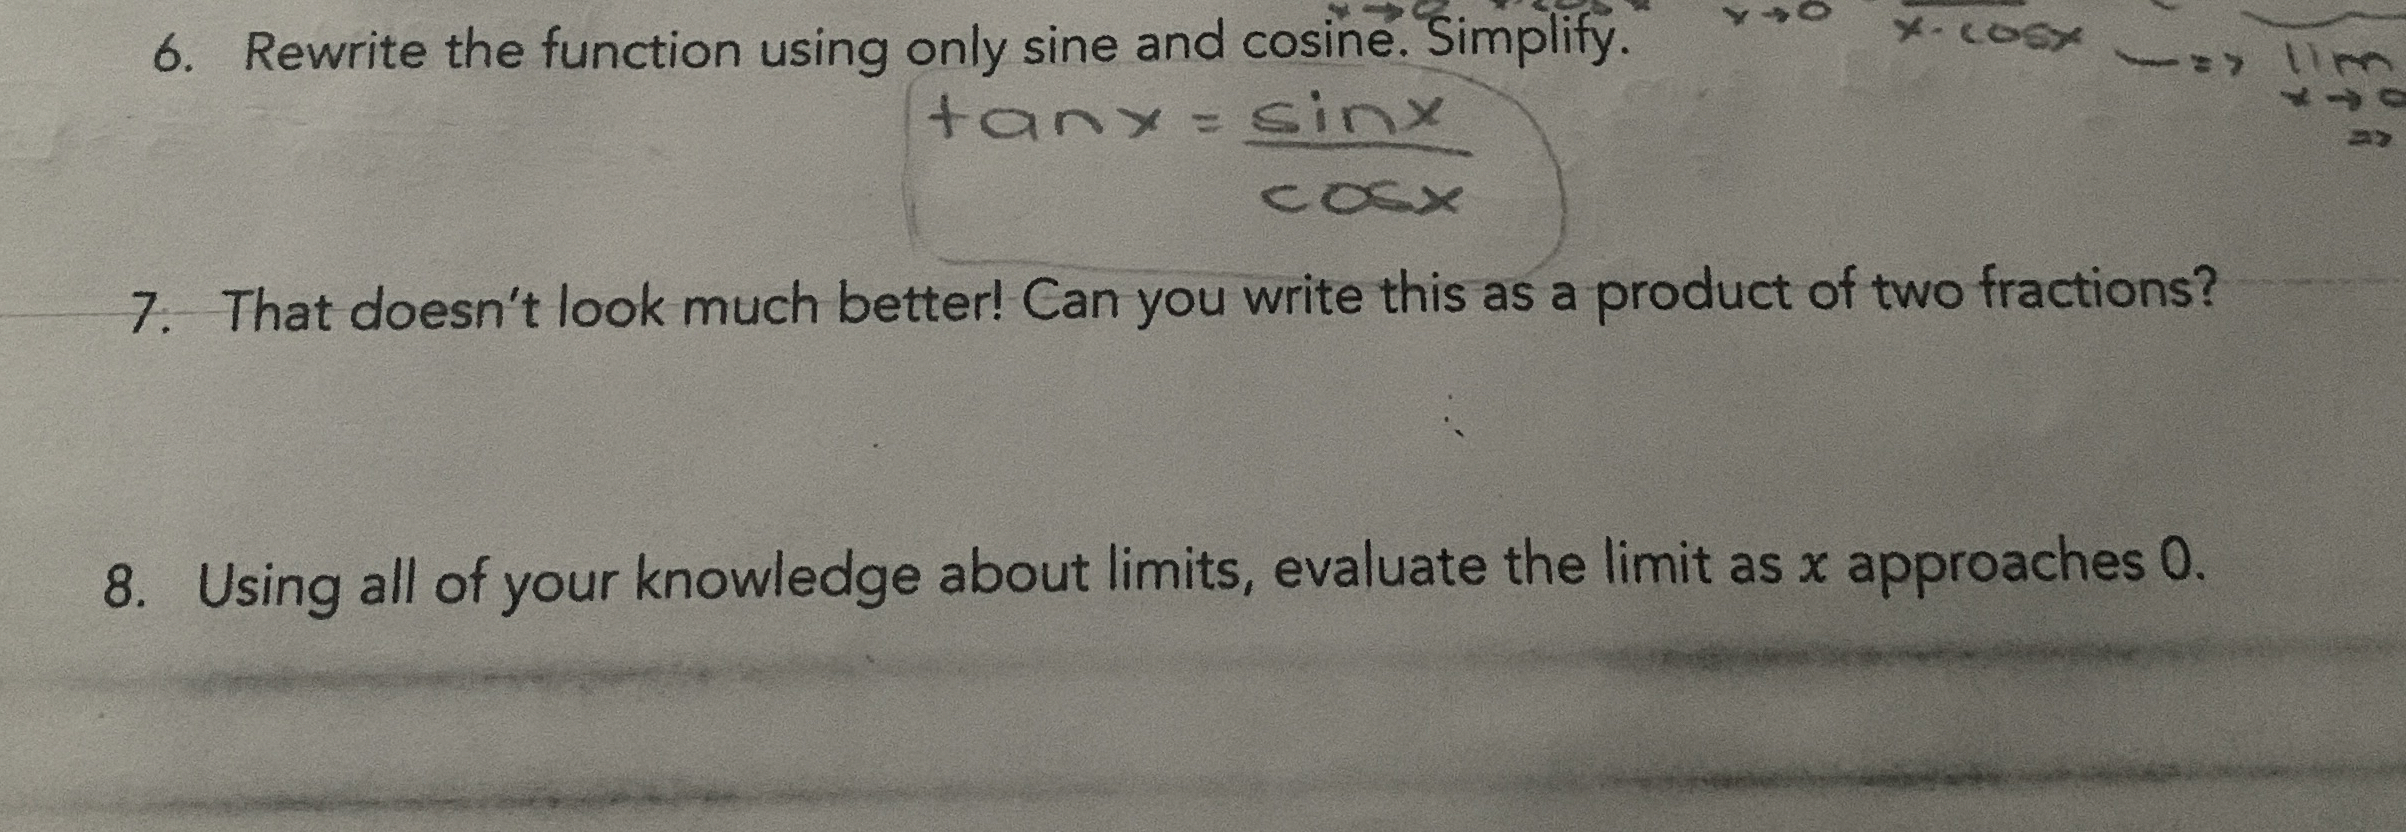 x→0
x→0
x·cosx
=> lim
x→0
=>
6. Rewrite the function using only sine and cosine. Simplify.
tanx = sinx
cosx
7. That doesn't look much better! Can you write this as a product of two fractions?
8. Using all of your knowledge about limits, evaluate the limit as x approaches 0.